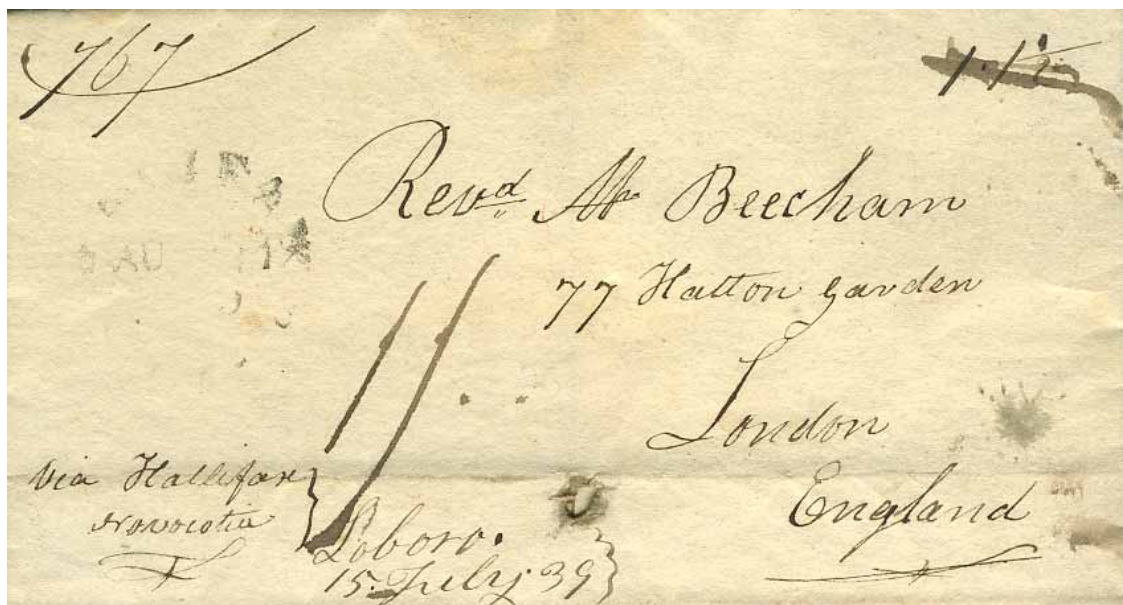 767
1.1½
Revd Mr Beecham
77 Hatton Garden
London
England
11
Via Hallifax
Novocotia
Loboro.
15. July 39
AU